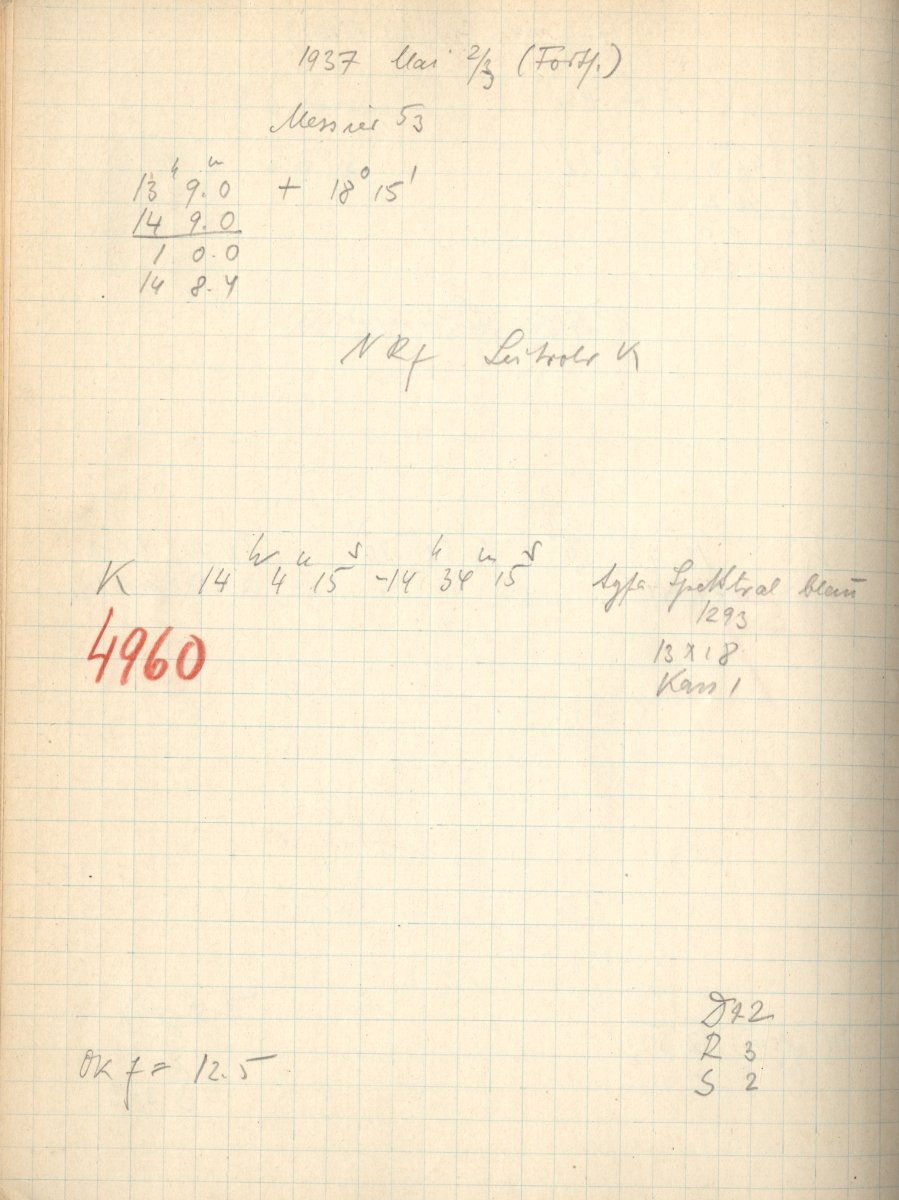 1937 Mai 2/3 (Fortf.)
Messier 53
13ʰ 9.ᵐ0 + 18° 15'
14 9.0
1 0.0
14 8.4
N Rf Leitrohr K
K 14ʰ 4ᵐ 15ˢ - 14ʰ 34ᵐ 15ˢ Agfa Spektral blau
4960 1293
13 x 18
Kass 1
D 2
R 3
OK f = 12.5
S 2